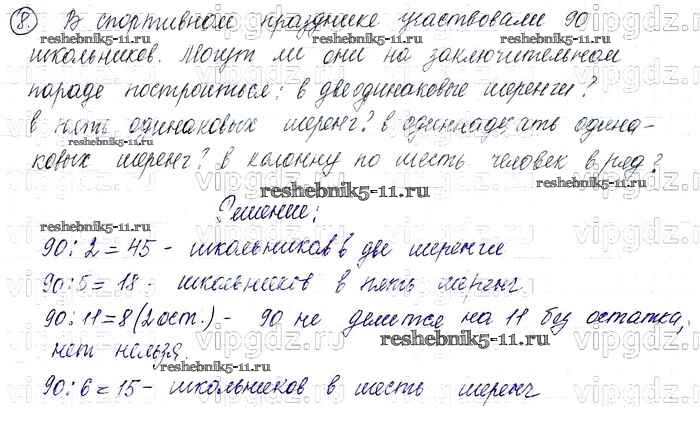 8. В спортивном празднике участвовали 90
школьников. Могут ли они на заключительном
параде построиться: в две одинаковые шеренги?
в пять одинаковых шеренг? в одиннадцать одина-
ковых шеренг? в колонну по шесть человек в ряд?
Решение:
90:2=45 - школьников в две шеренги
90:5=18 - школьников в пять шеренг
90:11=8(2 ост.) - 90 не делится на 11 без остатка,
нет нельзя.
90:6=15 - школьников в шесть шеренг
reshebnik5-11.ru
vipgdz.ru